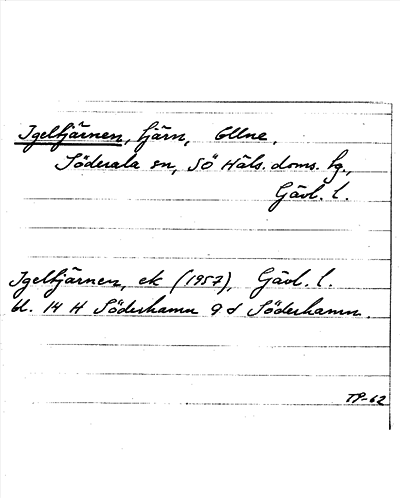 Igeltjärnen, tjärn, Ellne.
Söderala sn, Sö Häls. doms. fg.,
Gävl. l.
Igeltjärnen, ek (1957), Gävl. l.
bl. 14 H Söderhamn 9 d Söderhamn.
TP-62